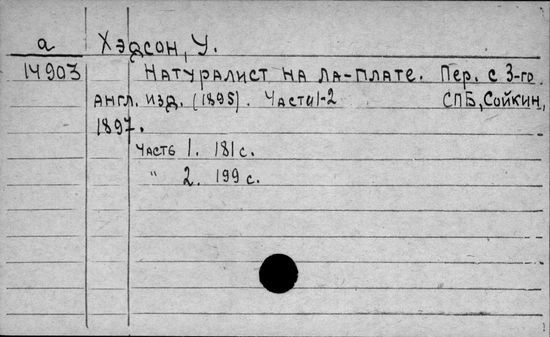 а Хэдсон, У.
14903 Натуралист на Ла-Плате. Пер. с 3-го
англ. изд. (1895). Части 1-2 СПБ, Сойкин,
1897.
Часть 1. 181 с.
" 2. 199 с.